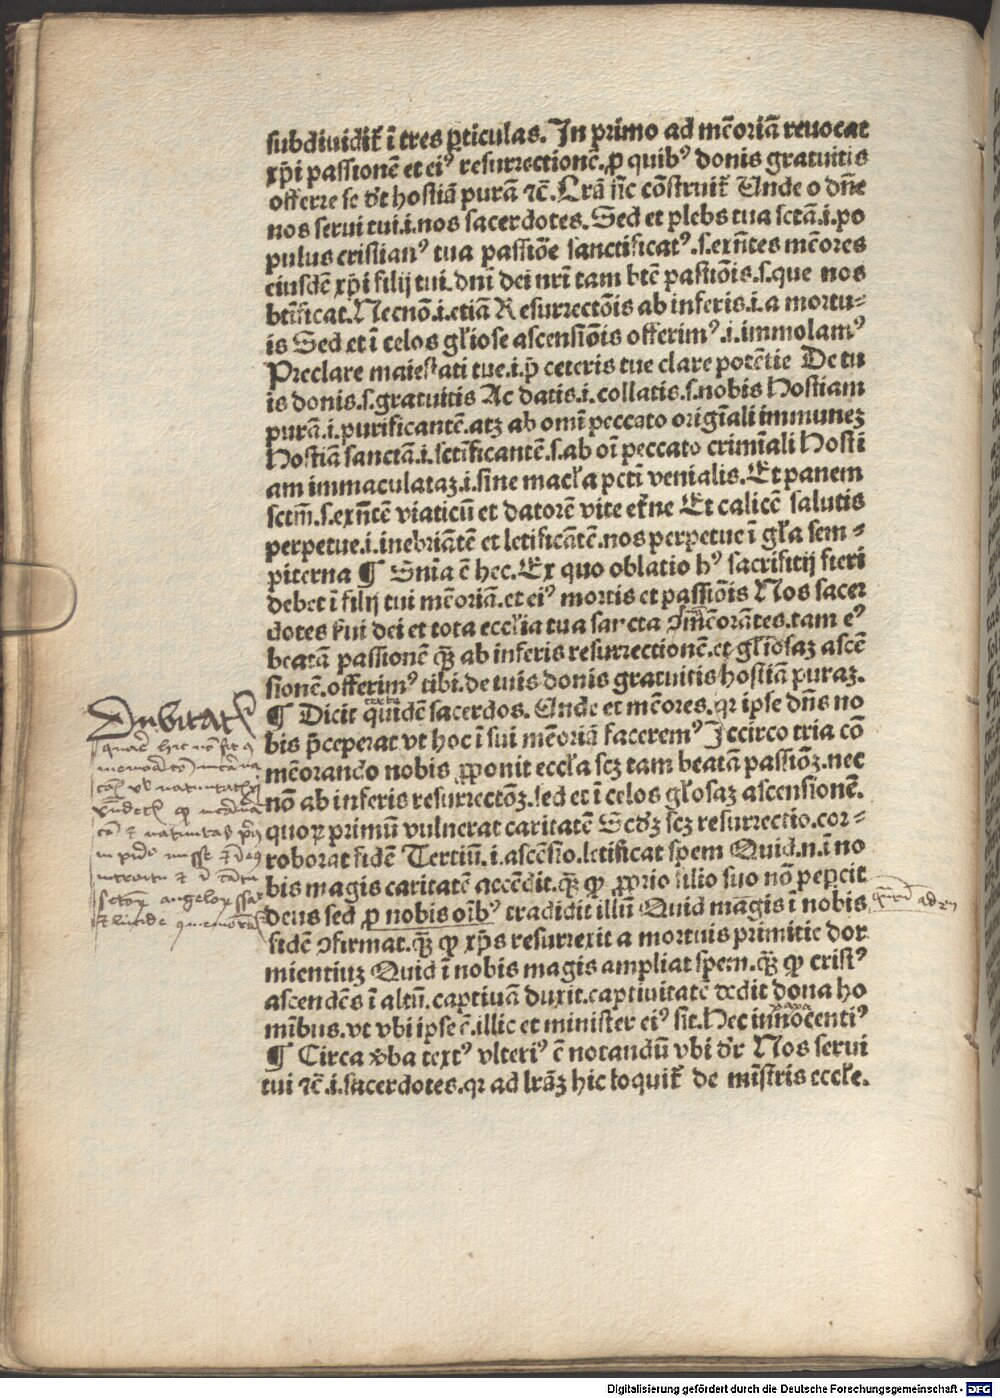 subdiuidit̃ ĩ tres ꝑticulas. In primo ad mẽoriã reuocat
xp̃i passionẽ et eiꝰ resurrectionẽ. ꝓ quibꝰ donis gratuitis
offerre se dr̃t hostiã purã ⁊c̃. Lr̃a sic cõstruit̃ Unde o dñe
nos serui tui.i.nos sacerdotes. Sed et plebs tua sctã.i.po
pulus cristianꝰ tua passiõe sanctificatꝰ.s.exñtes mẽores
eiusdẽ xp̃i filij tui.dnĩ dei nr̃i tam btẽ passiõis.s.que nos
btĩficat. Necnõ.i.etiã Resurrectõis ab inferis.i.a mortu⸗
is Sed et ĩ celos gl̃iose ascensiõis offerimꝰ.i.immolamꝰ
Preclare maiestati tue.i.p̃ ceteris tue clare potẽtie De tu
is donis.s.gratuitis Ac datis.i.collatis.s.nobis Hostiam
purã.i.purificantẽ.atꝫ ab omĩ peccato origĩali immuneꝫ
Hostiã sanctã.i.sctĩficantẽ.s.ab oĩ peccato crimĩali Hosti
am immaculataꝫ.i.sine macl̃a pctĩ venialis. Et panem
sctm̃.s.exñtẽ viaticũ et datorẽ vite et̃ne Et calicẽ salutis
perpetue.i.inebriãtẽ et letificãtẽ.nos perpetue ĩ gl̃a sem⸗
piterna ¶ Sñia ẽ hec. Ex quo oblatio hꝰ sacrificij fieri
debet ĩ filij tui mẽoriã.et eiꝰ mortis et passiõis Nos sacer
dotes s̃ui dei et tota eccl̃ia tua sancta ꝯmẽorãtes.tam eꝰ
beatã passionẽ qꝫ̃ ab inferis resurrectionẽ.et gl̃iosaꝫ ascẽ
sionẽ.offerimꝰ tibi.de tuis donis gratuitis hostiã puraꝫ.
¶ Dicit quidẽ sacerdos. Unde et mẽores.qꝛ ipse dñs no
bis p̃ceperat vt hoc ĩ sui mẽoriã faceremꝰ Iccirco tria cõ
mẽorando nobis ꝓponit eccl̃a scꝫ tam beatã passiõꝫ.nec
nõ ab inferis resurrectõꝫ.sed et ĩ celos gl̃osaꝫ ascensionẽ.
quoꝝ primũ vulnerat caritatẽ Scd̃ꝫ scꝫ resurrectio.cor⸗
roborat fidẽ Tertiũ.i.ascẽsio.letificat spem Quid.n.ĩ no
bis magis caritatẽ accẽdit.qꝫ̃ ꝙ ꝓprio filio suo nõ pepcit
deus sed ꝓ nobis oĩbꝰ tradidit illũ Quid magis ĩ nobis
fidẽ ꝯfirmat.qꝫ̃ ꝙ xp̃s resurrexit a mortuis primitie dor
mientiuꝫ Quid ĩ nobis magis ampliat spem.qꝫ̃ ꝙ cristꝰ
ascendẽs ĩ altũ.captiuã duxit.captiuitatẽ dedit dona ho
mĩbus.vt vbi ipse ẽ.illic et minister eiꝰ sit. Hec innocentiꝰ
papa
¶ Circa v̾ba textꝰ vlteriꝰ ẽ notandũ vbi dr̃ Nos serui
tui ⁊c̃.i.sacerdotes.qꝛ ad lr̃aꝫ hic loquit̃ de mĩstris eccl̃e.
Dubitat̃
Digitalisierung gefördert durch die Deutsche Forschungsgemeinschaft - DFG